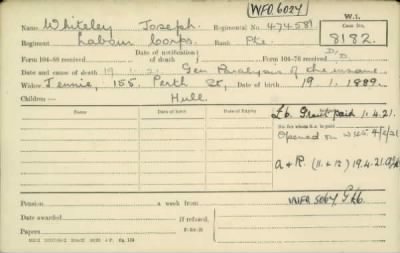 WFO.6024
W.I.
Name Whiteley Joseph. Regimental No. 474581 Case No.
Regiment Labour Corps. Rank Pte. 8182.
Form 104-88 received Date of notification of death Form 104-76 received D/D
Date and cause of death 19. 1. 21. Gen Paralysis of the insane.
Widow Jennie, 155, Perth St, Date of birth 19. 1. 1889.
Children— Hull.
Name Date of Birth Date of Expiry
£6. Grant paid 1.4.21.
Opened on 4/2/21
A & R. (11. & 12) 19.4.21.
Pension a week from WFA 5064 £6.
Date awarded If refused,
Papers